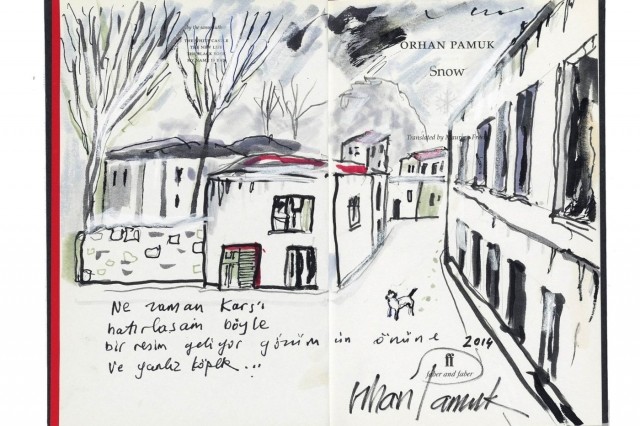 by the same author
THE WHITE CASTLE
THE NEW LIFE
THE BLACK BOOK
MY NAME IS RED
ORHAN PAMUK
Snow
Translated by Maureen
Ne zaman Kars'ı
hatırlasam böyle
bir resim geliyor gözümün önüne 2014
ve yanlız köpek...
ff
faber and faber
Orhan Pamuk